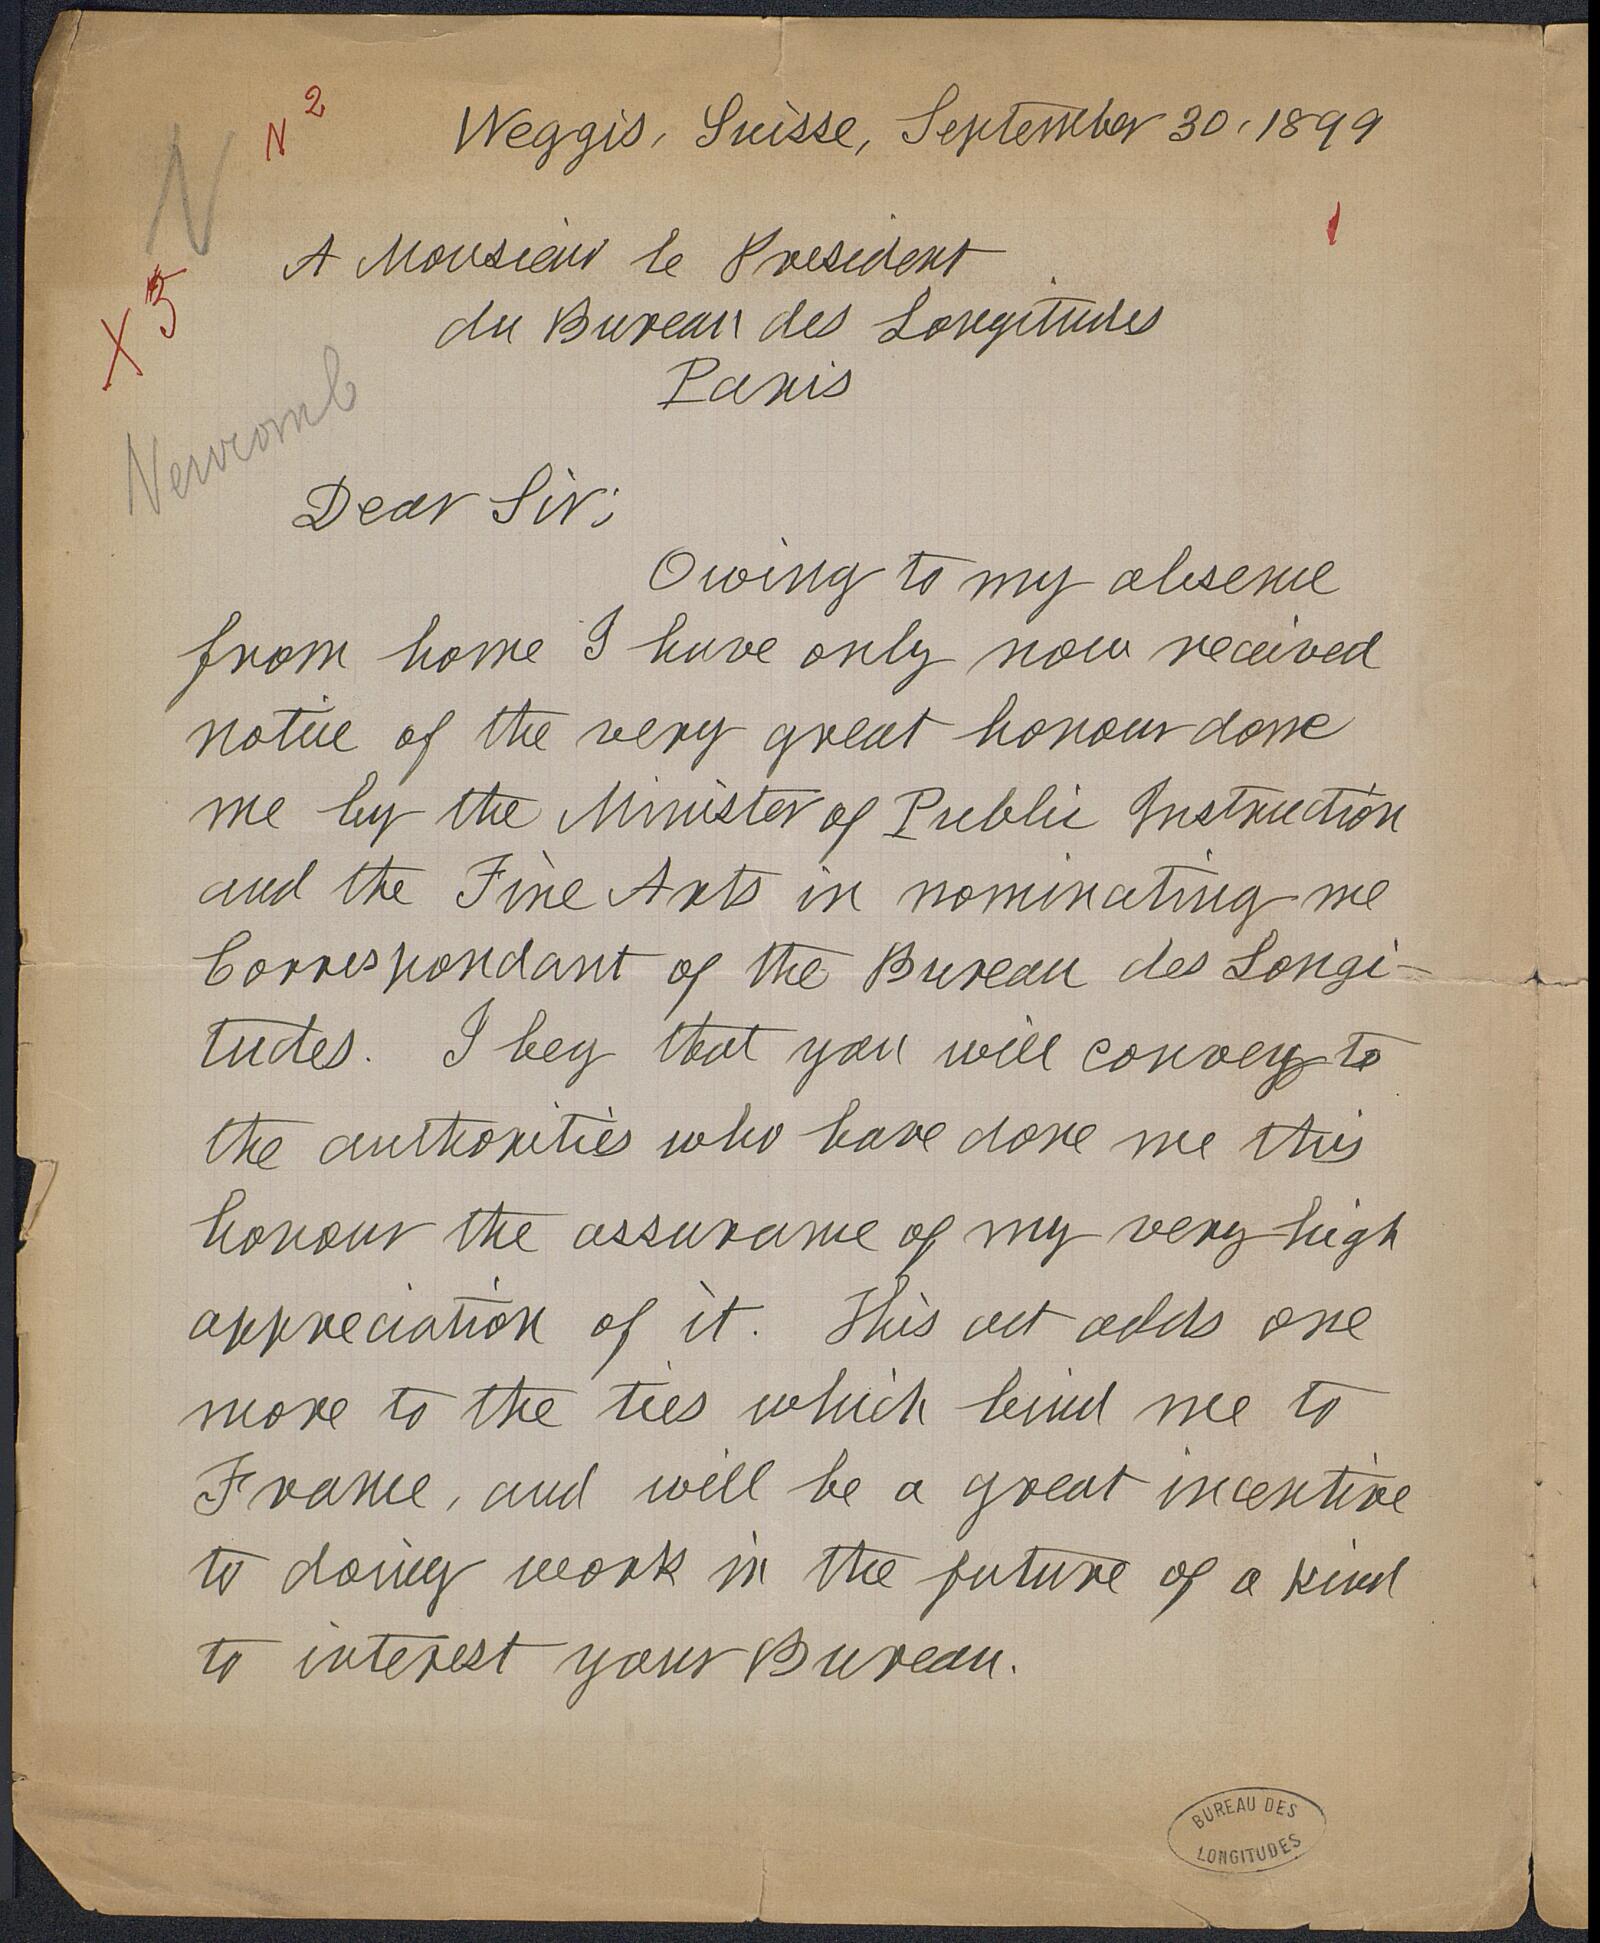 N 2
Weggis, Suisse, September 30, 1899
N
1
A Monsieur le President
X 5
du Bureau des Longitudes
Paris
Newcomb
Dear Sir;
Owing to my absence
from home I have only now received
notice of the very great honour done
me by the Minister of Public Instruction
and the Fine Arts in nominating me
Correspondant of the Bureau des Longi-
tudes. I beg that you will convey to
the authorities who have done me this
honour the assurance of my very high
appreciation of it. This act adds one
more to the ties which bind me to
France, and will be a great incentive
to doing work in the future of a kind
to interest your Bureau.
BUREAU DES
LONGITUDES